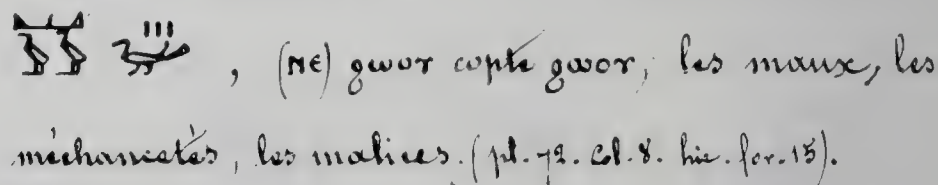 , (ⲛⲉ) ϩⲱⲟⲩ copte ϩⲱⲟⲩ, les maux, les
méchancetés, les malices. (pl. 72. col. 8. hie. for. 15).